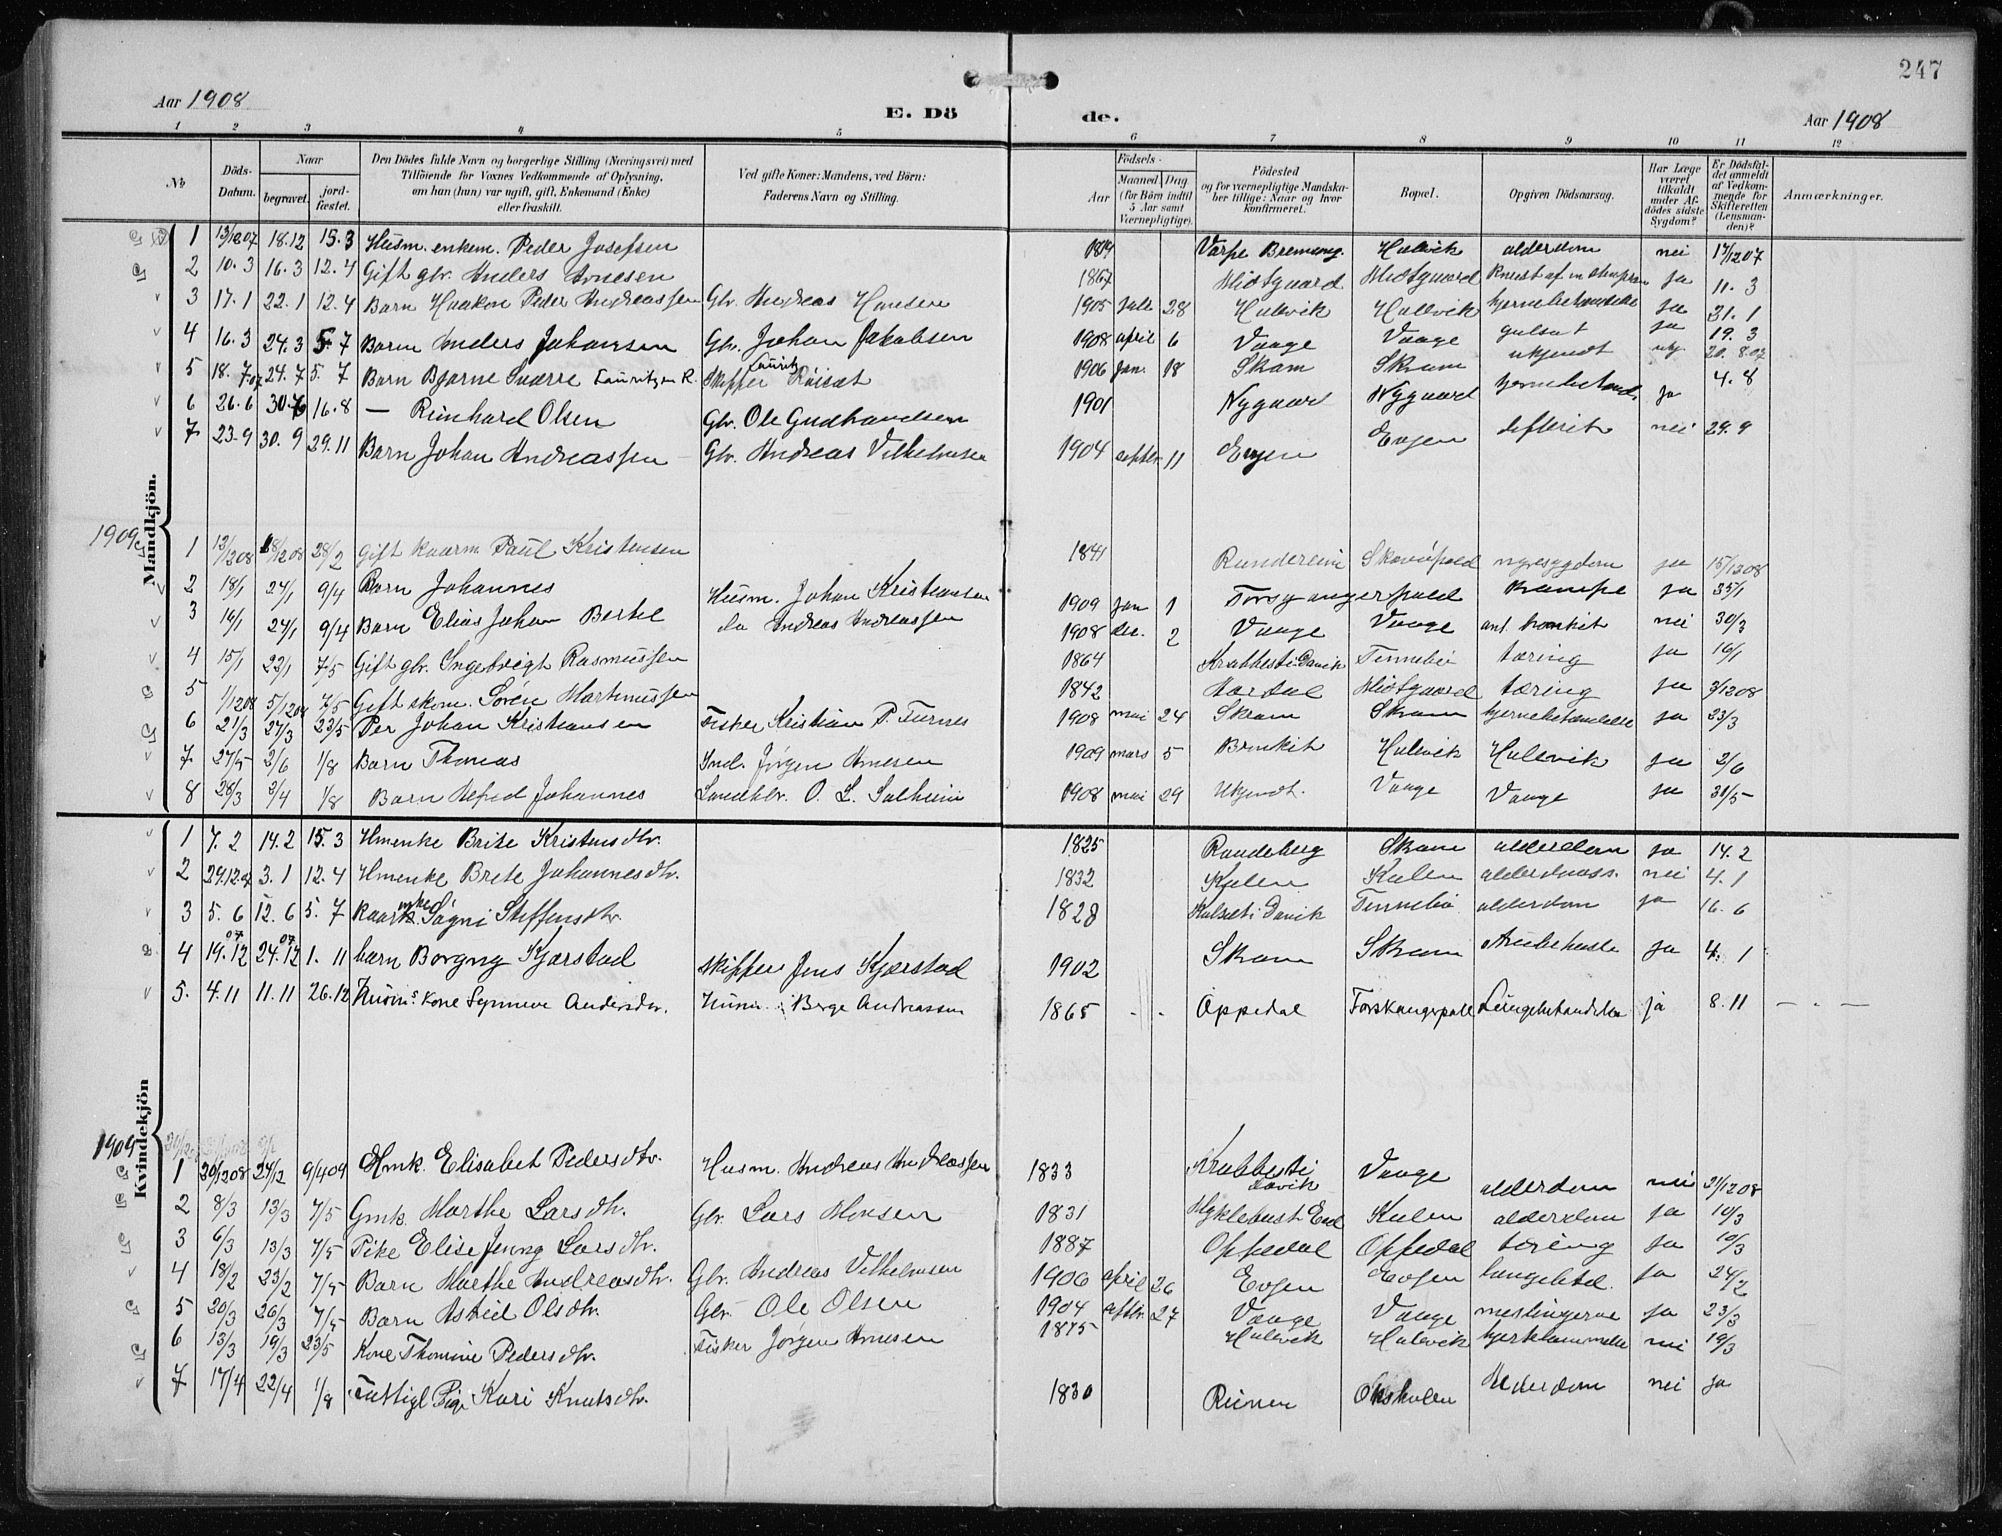 247
Aar 1908
E. Dö
de.
Aar 1908
1 2 3 4 5 6 7 8 9 10 11 12
No.
Döds-Datum.
Naar
begravet.
jord-fæstet.
Den Dödes fulde Navn og borgerlige Stilling (Næringsvei) med
Tilföiende for Voxnes Vedkommende af Oplysning,
om han (hun) var ugift, gift, Enkemand (Enke)
eller fraskilt.
Ved gifte Koner: Mandens, ved Börn:
Faderens Navn og Stilling.
Födsels-
Aar
Maaned Dag
(for Börn indtil 5 Aar samt Værnepligtige).
Födested
og for værnepligtige Mandska-
ber tillige: Naar og hvor
konfirmeret.
Bopæl.
Opgiven Dödsaarsag.
Har Læge været tilkaldt under Af-dödes sidste Sygdom?
Er Dödsfal-det anmeldt af Vedkom-mende for Skifteretten (Lensman-den)?
Anmærkninger.
Mandkjön.
1 13/12 07 18.12 15.3 Husm. enkem. Peder Josefsen 1819 Varpe Bremang. Hulevik alderdom nei 17/12 07
2 10.3 16.3 12.4 Gift gbr. Anders Arnesen 1867 Midtgaard Midtgaard ja 11.3
3 17.1 22.1 12.4 Barn Haakon Peder Andreassen Gbr. Andreas Hansen 1905 juli 28 Hulevik Hulevik hjernebetændelse ja 21.1
4 16.3 24.3 5.7 Barn Anders Johansen Gbr. Johan Jakobsen 1908 april 6 Vaage Vaage gulsot ja 19.3
5 18.7 07 24.7 5.7 Barn Bjarne Sverre Lauritzen R. Skipper Lauritz Röisæt 1906 jan. 18 Skram Skram ukjendt ukj. 20.8.07
6 26.6 30.6 16.8 — Reinhard Olsen Gbr. Ole Gudhandsen 1901 Nygaard Nygaard hjernebetænd. ja 4.8
7 23.9 30.9 29.11 Barn Johan Andreassen Gbr. Andreas Vilhelmsen 1904 septbr. 11 Evjen Evjen difterit nei 29.9
1909
1 13/12 08 18/12 08 28/2 Gift kaarm. Paul Kristensen 1841 Rundereim nyresygdom ja 15/12 08
2 18/1 24/1 9/4 Barn Johannes Husm. Johan Kristiansen 1909 jan 1 Krampe ja 25/1
3 16/1 24/1 9/4 Barn Elias Johan Bertel do Andreas Andreassen 1908 dec. 2 Vaage Vaage ant. bronkit nei 30/3
4 15/1 22/1 7/5 Gift gbr. Ingebrigt Rasmussen 1864 Krabbesti Davik Tennebö tæring ja 19/1
5 1/12 08 5/12 08 7/5 Gift skom. Sören Martinussen 1842 Midtgaard tæring ja 3/12 08
6 21/3 27/3 23/5 Per Johan Kristiansen Fisker Kristian P. Furnes 1908 mai 24 Skram Skram hjernebetændelse ja 23/3
7 27/5 2/6 1/8 Barn Thomas Ind. Jørgen Arnesen 1909 mars 5 Hulevik Hulevik ja 2/6
8 28/3 2/4 1/8 Barn Alfred Johannes Landhdlr. O. L. Solheim 1908 mai 29 Ukjendt. Vaage Vaage ja 31/5
Kvindekjön
1 7.2 14.2 15.3 Hmenke Brite Kristensdtr. 1825 Randeberg Skram alderdom ja 14.2
2 24.12.07 3.1 12.4 Hmenke Brite Johannesdtr. 1832 Kulen Kulen alderdomss. nei 4.1
3 5.6 12.6 5.7 Kaarenke Sögni Steffensdtr. 1828 Davik Tennebö alderdom ja 16.6
4 19.12 07 24.12 07 1.11 barn Borgny Kjærstad skipper Jens Kjærstad 1902 Skram Skram ja 4.1
5. 4.11 11.11 26.12 Husm.s Kone Synneve Andersdtr. Husm. Børge Andreassen 1865 - - Oppedal Lungebetændelse ja 8.11 - . -
1909
1 20/12 08 24/12 9/4 09 Hmk. Elisabet Pedersdtr. Husm. Andreas Andreassen 1833 Krabbesti Davik Vaage alderdom nei 21/12 08
2 8/3 13/3 7/5 Gmk. Marthe Larsdtr. Gbr. Lars Monsen 1831 Myklebust Eid Kulen alderdom ja 10/3
3 6/3 13/3 7/5 Pike Elise Jenny Larsdtr. 1887 Oppedal Oppedal tæring ja 10/3
4 18/2 23/2 7/5 Barn Marthe Andreasdtr. Gbr. Andreas Vilhelmsen 1906 april 26 Evjen Evjen lungebtd. ja 24/2
5 20/3 26/3 7/5 Barn Astrid Olsdtr. Gbr. Ole Olsen 1904 septbr. 27 Vaage Vaage meslingerne ja 23/3
6 13/3 19/3 23/5 Kone Thomine Pedersdtr. Fisker Jørgen Arnesen 1875 Hulevik Hulevik hjertelammelse nei 19/3
7 17/4 22/4 1/8 Fattigl. Pige Kari Knutsdtr. 1830 Alderdom nei ja